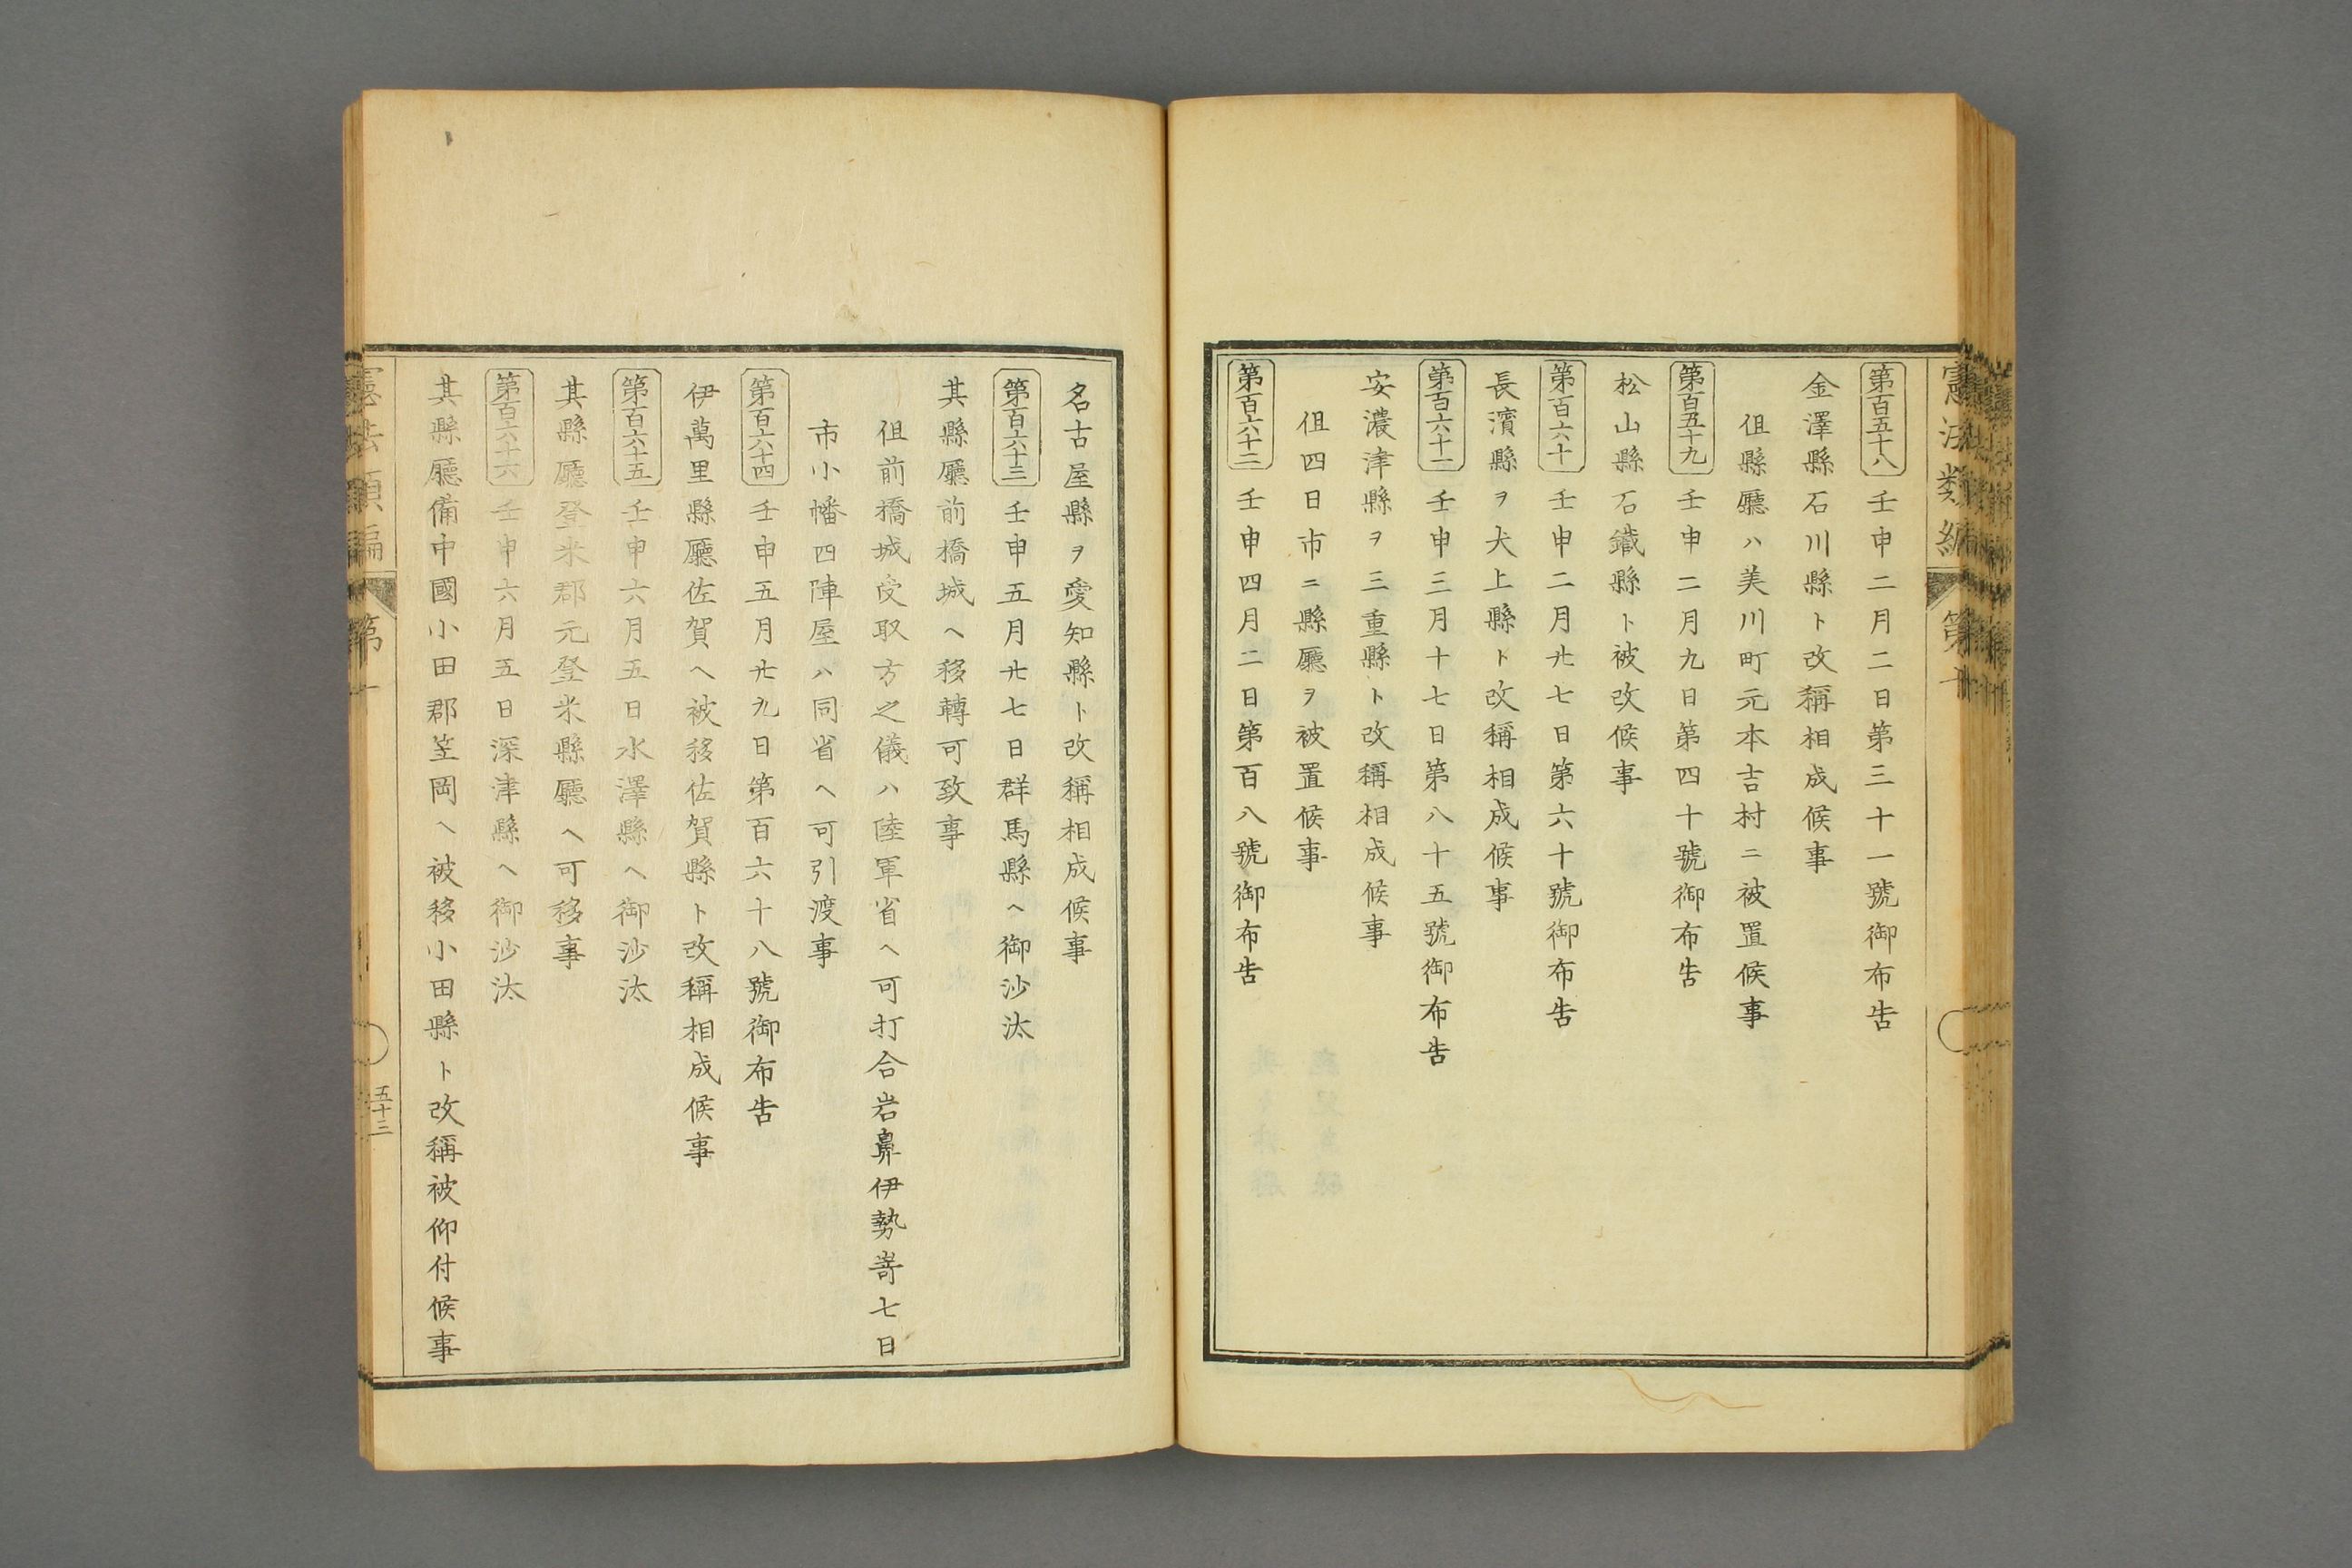 第百五十八 壬申二月二日第三十一號御布告
金澤縣石川縣ト改稱相成候事
伹縣廳ハ美川町元本吉村ニ被置候事
第百五十九 壬申二月九日第四十號御布告
松山縣石鐵縣ト被改候事
第百六十 壬申二月廿七日第六十號御布告
長濱縣ヲ犬上縣ト改稱相成候事
第百六十一 壬申三月十七日第八十五號御布告
安濃津縣ヲ三重縣ト改稱相成候事
伹四日市ニ縣廳ヲ被置候事
第百六十二 壬申四月二日第百八號御布告
名古屋縣ヲ愛知縣ト改稱相成候事
第百六十三 壬申五月廿七日群馬縣ヘ御沙汰
其縣廳前橋城ヘ移轉可致事
伹前橋城受取方之儀ハ陸軍省ヘ可打合岩鼻伊勢嵜七日
市小幡四陣屋ハ同省ヘ可引渡事
第百六十四 壬申五月廿九日第百六十八號御布告
伊萬里縣廳佐賀ヘ被移佐賀縣ト改稱相成候事
第百六十五 壬申六月五日水澤縣ヘ御沙汰
其縣廳登米郡元登米縣廳ヘ可移事
第百六十六 壬申六月五日深津縣ヘ御沙汰
其縣廳備中國小田郡笠岡ヘ被移小田縣ト改稱被仰付候事
憲法類編 第十
五十三